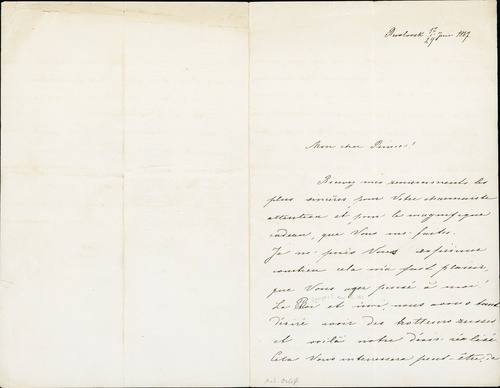 Pawlovsk 17/29 Juin 1867
Mon cher Prince!
Recevez mes remerciements les
plus sincères pour Votre charmante
attention et pour le magnifique
cadeau, que Vous me faites.
Je ne puis Vous exprimer
combien cela m'a fait plaisir,
que Vous ayez pensé à moi!
Le Roi et moi, nous avons tant
désiré avoir des trotteurs russes
et voilà notre désir réalisé
Cela Vous interessera peut-être, de